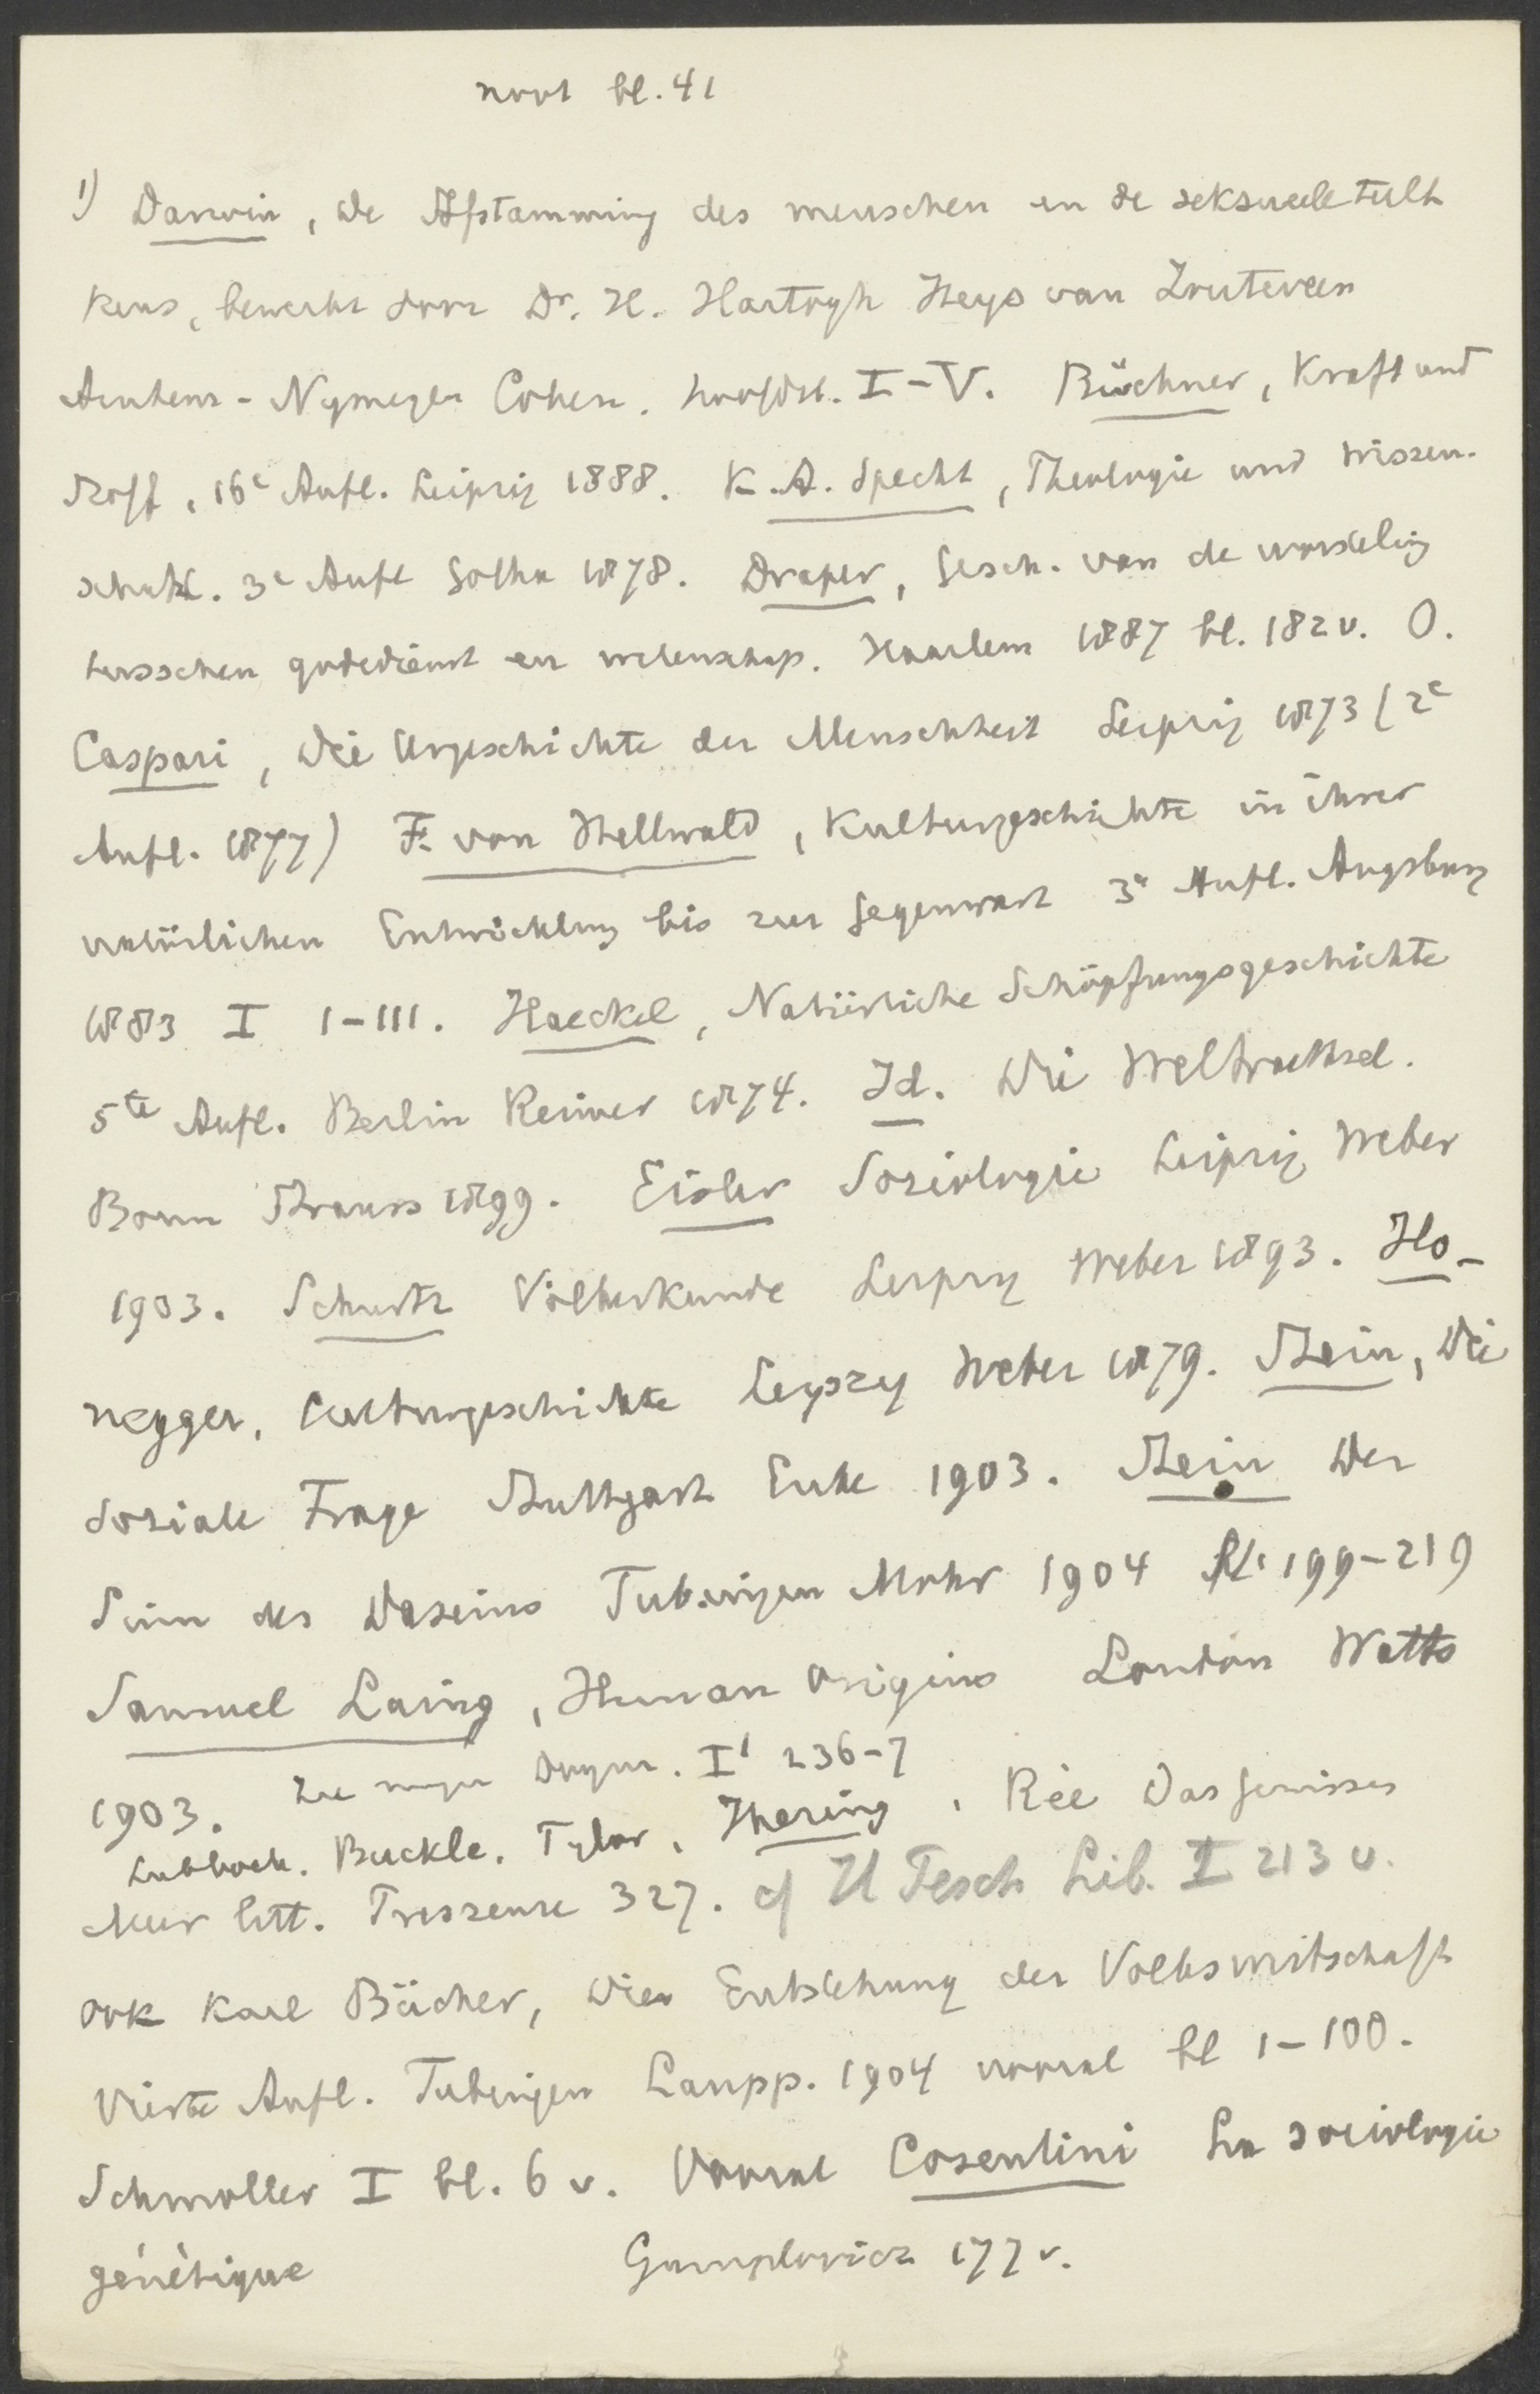 noot bl. 41
1) Darwin, de Afstamming des menschen en de seksueele teelt
keus, bewerkt door Dr. H. Hartogh Heys van Zouteveen
Arnhem-Nijmegen Cohen. hoofdst. I-V. Büchner, Kraft und
Stoff, 16e Aufl. Leipzig 1888. K.A. Specht, Theologie und Wissen-
schaft. 3e Aufl Gotha 1878. Draper, Gesch. van de worsteling
tusschen godsdienst en wetenschap. Haarlem 1887 bl. 182 v. O.
Caspari, Die Urgeschichte der Menschheit Leipzig 1873 (2e
Aufl. 1877) F. von Hellwald, Kulturgeschichte in ihrer
natürlichen Entwicklung bis zur Gegenwart 3e Aufl. Augsburg
1883 I I-III. Haeckel, Natürliche Schöpfungsgeschichte
5te Aufl. Berlin Reimer 1874. Id. Die Weltraethsel.
Bonn Strauss 1899. Eisler Soziologie Leipzig Weber
1903. Schurtz Völkerkunde Leipzig Weber 1893. Ho-
negger, Culturgeschichte Leipzig Weber 1879. Stein, Die
Soziale Frage Stuttgart Enke 1903. Stein Der
Sinn des Daseins Tubingen Mohr 1904 bl. 199-219
Samuel Laing, Human Origins London Watts
1903. Zie mijn Dogm. I1 236-7
Lubbock. Buckle. Tylor, Ihering, Rée Das Gewissen
Meer litt. 327. cf Fesch Lib. I 213 v.
ook Karl Bücher, Die Entstehung der Volkswirtschaft
Vierte Aufl. Tubingen Laupp. 1904 vooral bl 1-100.
Schmoller I bl. 6 v. Vooral Cosentini La sociologie
génétique Gumplovicz 177 v.